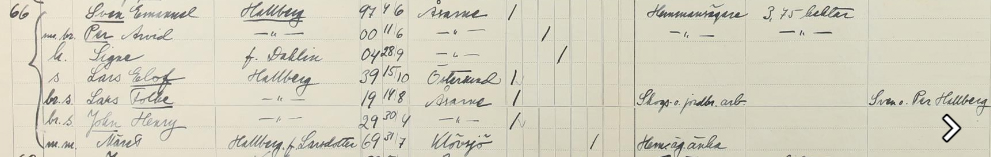 66 Sven Emanuel Hallberg 97 4/6 Åsarne / Hemmansägare 3,75 hektar
m. br. Per Arvid -"- 00 11/6 -"- / -"- -"-
h. Signe f. Dahlin 04 28/9 -"- /
s Lars Elof Hallberg 39 15/10 Östersund /
br. s. Lars Folke -"- 19 14/8 Åsarne / Skogs- o. jordbr. arb. Sven o. Per Hallberg
br. s. John Henry -"- 29 30/4 -"- /
m. m. Märet Hallberg, f. Larsdotter 69 31/7 Klövsjö / Hemägänka